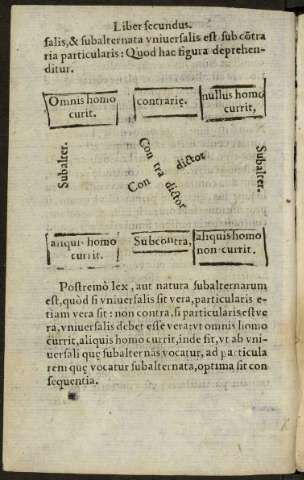 Liber secundus.
salis, & subalternata vniuersalis est sub cõtra
ria particularis: Quod hac figura deprehen-
ditur.
Omnis homo
curit.
contrarię.
nullus homo
currit,
Subalter.
Con tra dictor
Con dictor
Subalter.
aliqui. homo
currit.
Subcontra,
aliquis homo
non currit.
Postremò lex, aut natura subalternarum
est, quòd si vniuersalis sit vera, particularis e-
tiam vera sit: non contra, si particularis est ve
ra, vniuersalis debet esse vera: vt omnis homo
currit, aliquis homo currit, inde fit, vt ab vni-
uersali quę subalternãs vocatur, ad particula
rem quę vocatur subalternata, optima sit con
sequentia.